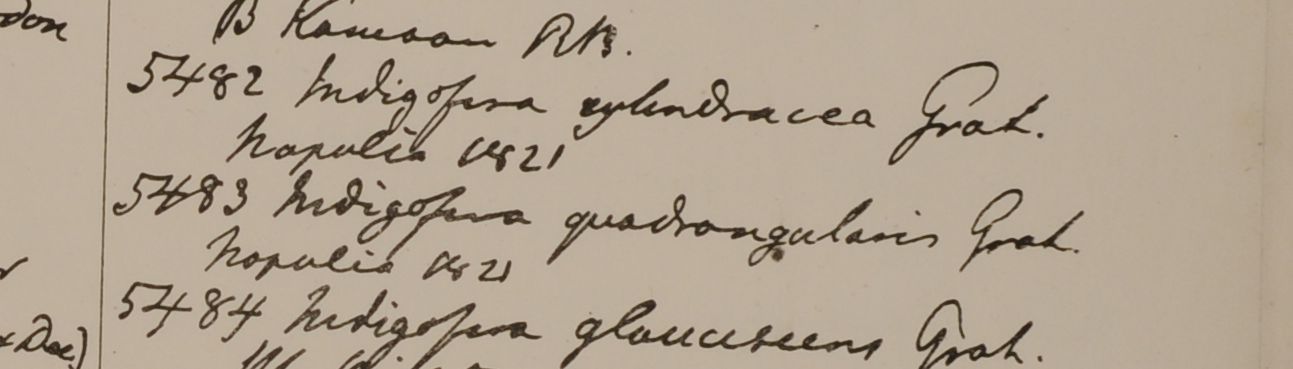 don
B Kamoon RB.
5482 Indigofera cylindracea Grah.
Napalia 1821
5483 Indigofera quadrangularis Grah.
Napalia 1821
5484 Indigofera glaucescens Grah.
Doc)